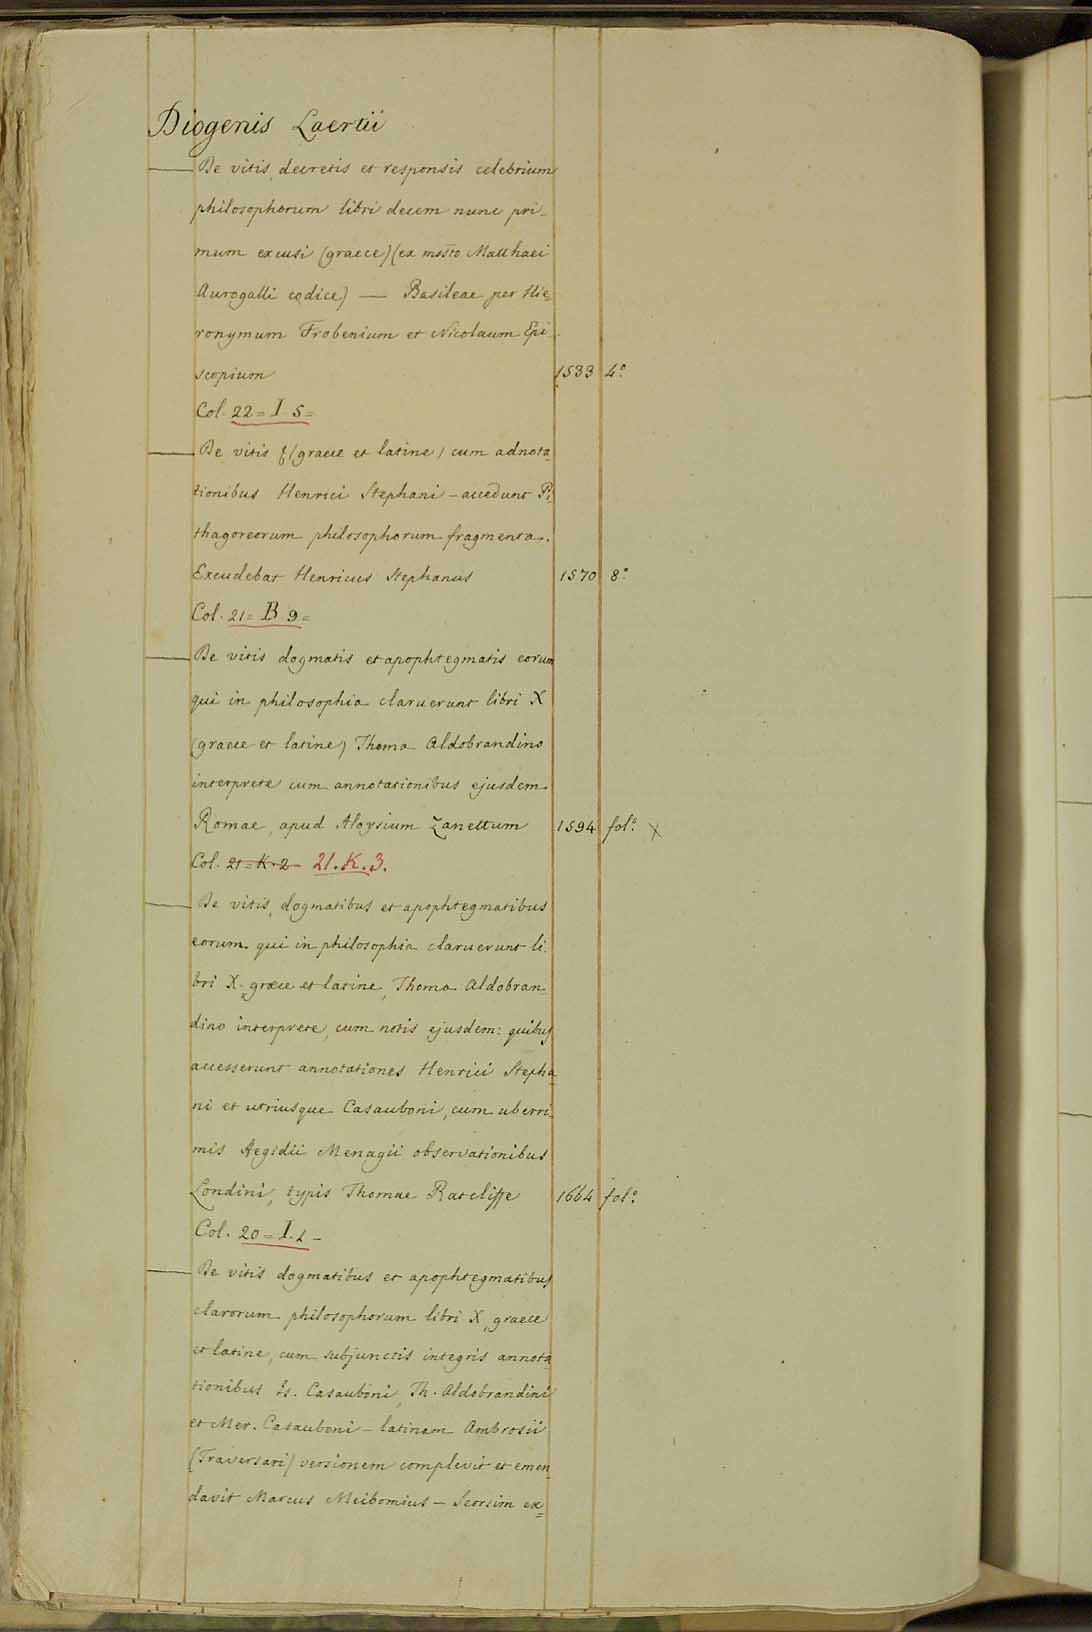 Diogenis Laertii
— De vitis, decretis et responsis celebrium
philosophorum libri decem nunc pri-
mum excusi (graece) (ex mssto Matthaei
Aurogalli codice) — Basileae per Hie=
ronymum Frobenium et Nicolaum Epi-
scopium 1533 4.º
Col. 22 = I. 5 =
— De vitis &(graece et latine) cum adnota=
tionibus Henrici Stephani – accedunt Pi=
thagoreorum philosophorum fragmenta.
Excudebat Henricus Stephanus 1570 8.º
Col. 21 = B. 9 =
— De vitis dogmatis et apophtegmatis eorum
qui in philosophia claruerunt libri X
(graece et latine) Thoma Aldobrandino
interprete cum annotationibus ejusdem
Romae, apud Aloysium Zanettum 1594 fol.º X
Col. 21 = K. 2 21. K. 3.
— De vitis, dogmatibus et apophtegmatibus
eorum qui in philosophia claruerunt li-
bri X. græce et latine, Thoma Aldobran=
dino interprete, cum notis ejusdem: quibus
accesserunt annotationes Henrici Stepha=
ni et utriusque Casauboni, cum uberri=
mis Aegidii Menagii observationibus
Londini, typis Thomae Ratcliffe 1664 fol.º
Col. 20 = I. 1 –
— De vitis dogmatibus et apophtegmatibus
clarorum philosophorum libri X, graece
et latine, cum subjunctis integris annota=
tionibus Is. Casauboni, Th. Aldobrandini
et Mer. Casauboni – latinam Ambrosii
(Traversari) versionem complevit et emen=
davit Marcus Meibomius – Seorsim ex=